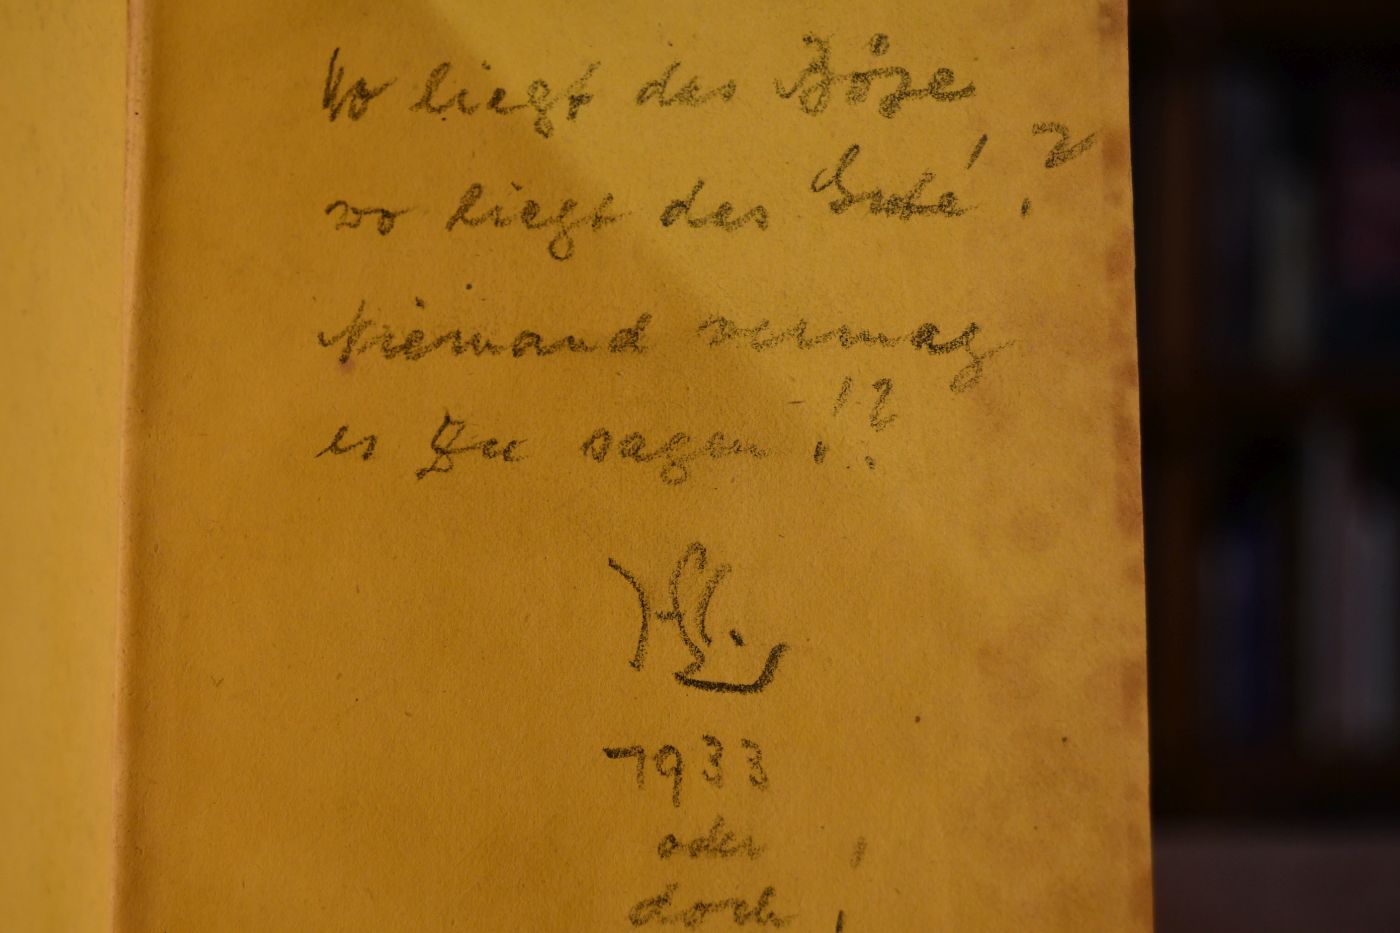 Wo liegt das Böse
wo liegt das Gute!?
Niemand vermag
es zu sagen!?
1933
oder
doch!